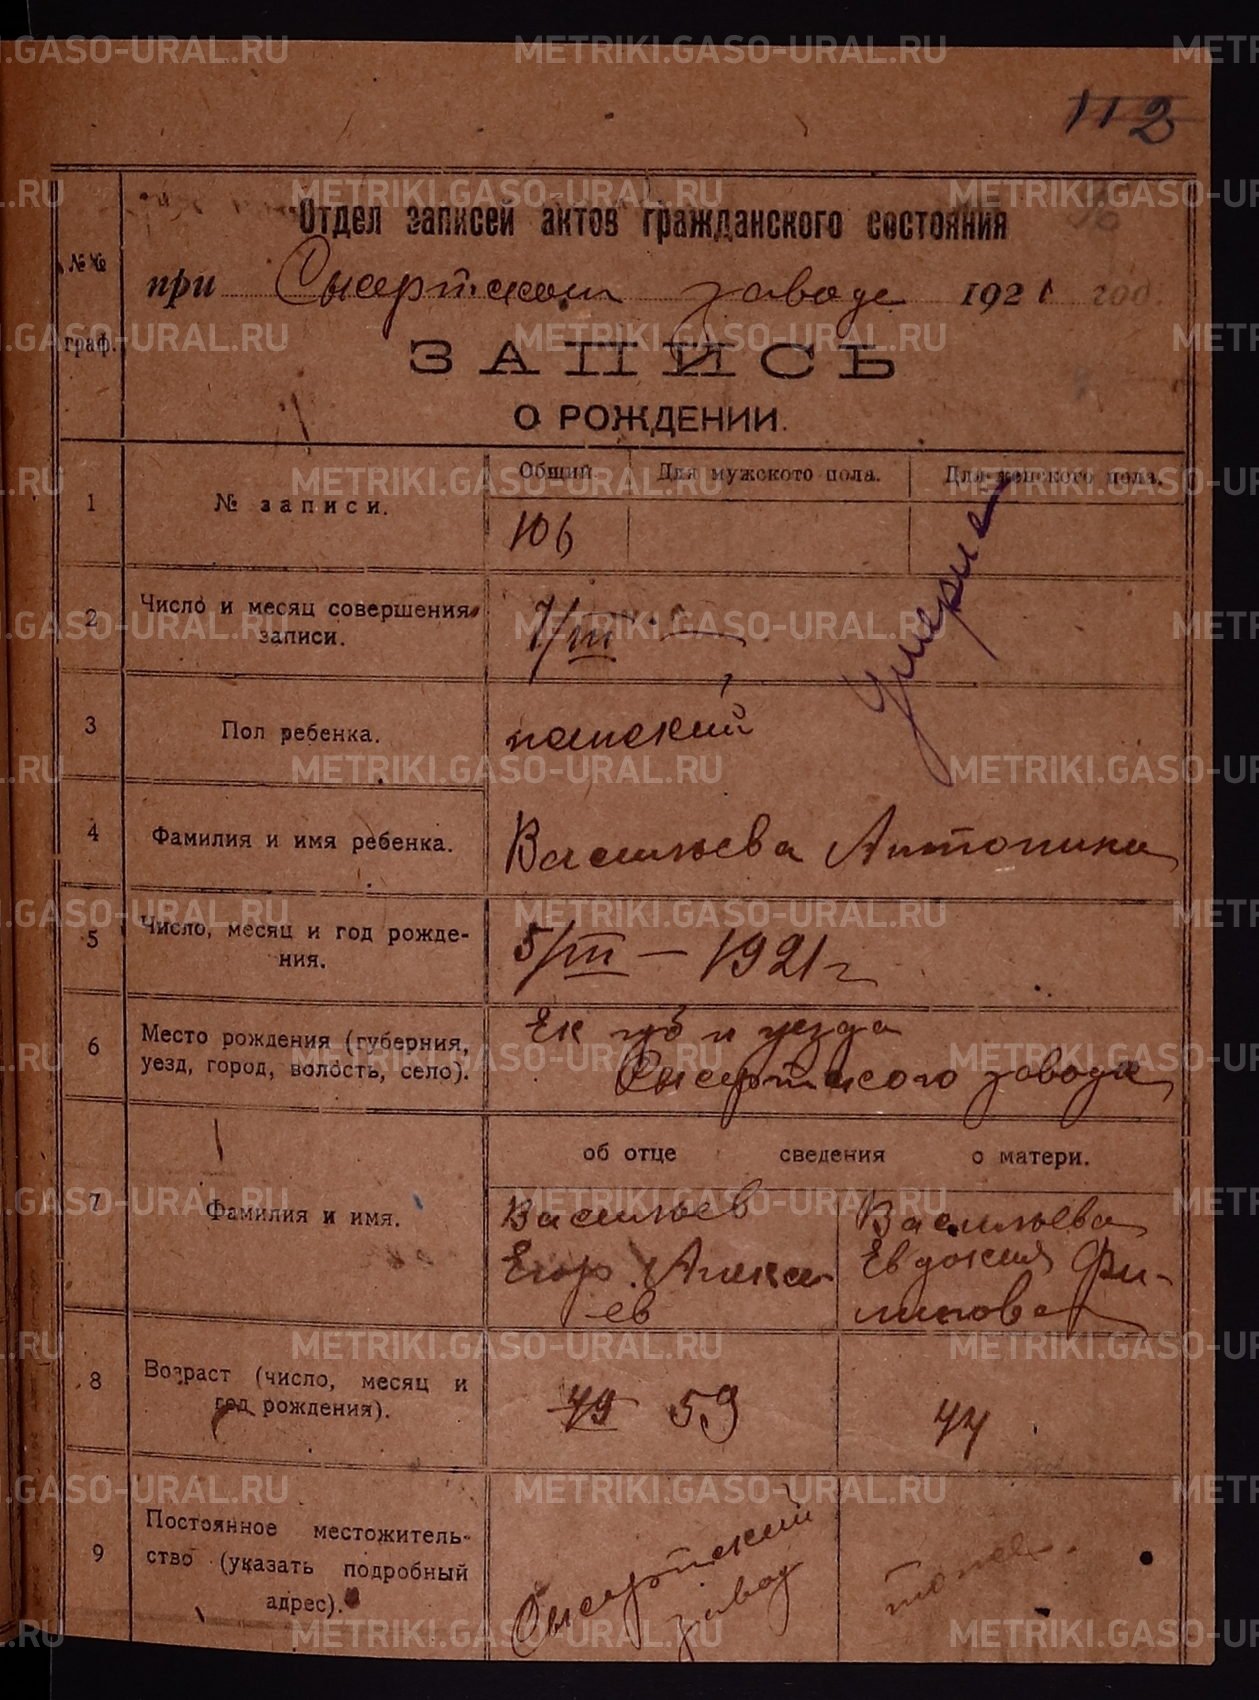 112
Отдел записей актов гражданского состояния
при Сысертском заводе 1921 год.
№№ граф.
ЗАПИСЬ
О РОЖДЕНИИ.
Общий Для мужского пола. Для женского пола.
1 № записи. 106
2 Число и месяц совершения записи. 7/III
умерла
3 Пол ребенка. женский
4 Фамилия и имя ребенка. Васильева Антонина
5 Число, месяц и год рожде-
ния. 5/III — 1921 г
6 Место рождения (губерния,
уезд, город, волость, село).
Ек губ и уезда
Сысертского завода
об отце сведения о матери.
7 Фамилия и имя.
Васильев
Егор Алексе-
ев
Васильева
Евдокия Фи-
липова
8 Возраст (число, месяц и
год рождения).
49 59
44
9 Постоянное местожитель-
ство (указать подробный
адрес).
Сысертский
завод
тоже
METRIKI.GASO-URAL.RU